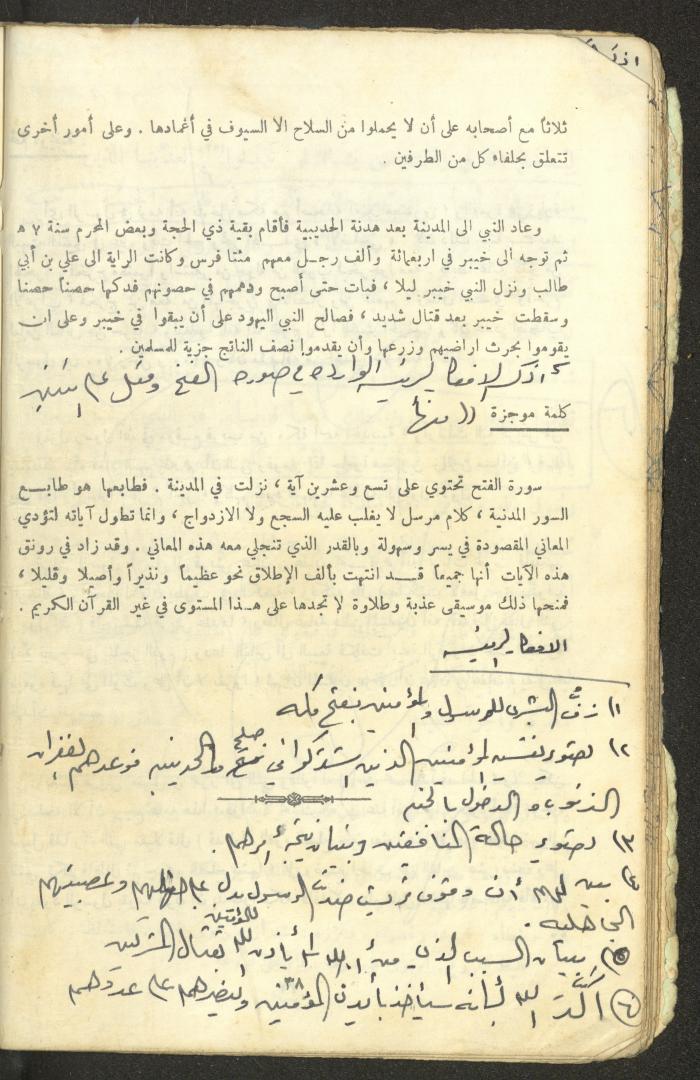 ثلاثاً مع أصحابه على أن لا يحملوا من السلاح الا السيوف في أغمادها . وعلى أمور أخرى
تتعلق بحلفاء كل من الطرفين .
وعاد النبي الى المدينة بعد هدنة الحديبية فأقام بقية ذي الحجة وبعض المحرم سنة ٧ ه
ثم توجه الى خيبر في اربعمائة وألف رجل معهم مئتا فرس وكانت الراية الى علي بن أبي
طالب ونزل النبي خيبر ليلا ، فبات حتى أصبح ودهمهم في حصونهم فدكها حصناً حصنا
وسقطت خيبر بعد قتال شديد ، فصالح النبي اليهود على أن يبقوا في خيبر وعلى ان
يقوموا بحرث اراضيهم وزرعها وأن يقدموا نصف الناتج جزية للمسلمين .
اذكر الافكار الرئيسية الواردة في صورة الفتح ومثل على إثنين
كلمة موجزة (( منها
سورة الفتح تحتوي على تسع وعشرين آية ، نزلت في المدينة . فطابعها هو طابع
السور المدنية ، كلام مرسل لا يغلب عليه السجع ولا الازدواج ، وانما تطول آياته لتؤدي
المعاني المقصودة في يسر وسهولة وبالقدر الذي تنجلي معه هذه المعاني . وقد زاد في رونق
هذه الآيات أنها جميعاً قد انتهت بألف الإطلاق نحو عظيماً ونذيراً وأصيلا وقليلا ،
فمنحها ذلك موسيقى عذبة وطلاوة لا تجدها على هذا المستوى في غير القرآن الكريم .
الافكار الرئيسية
١) زفّ البشرى للرسول والمؤمنين بفتح مكة
٢) تصوير نفسية المؤمنين الذين اشتركوا في صلح الحديبية فوعدهم بغفران
الذنوب والدخول بالجنة
٣) تصوير حالة المنافقين وبيان نتيجة أمرهم
٤) بين لهم أن وقوف قريش ضد الرسول يدل على جهلهم وعصبيتهم
الجاهلية .
٥) بيان السبب الذي من أجله لم يأذن الله للمؤمنين بقتال المشركين
٦) أكّد الله بأنه سيأخذ بأيدي المؤمنين ولينصرهم على عدوهم
٣٨